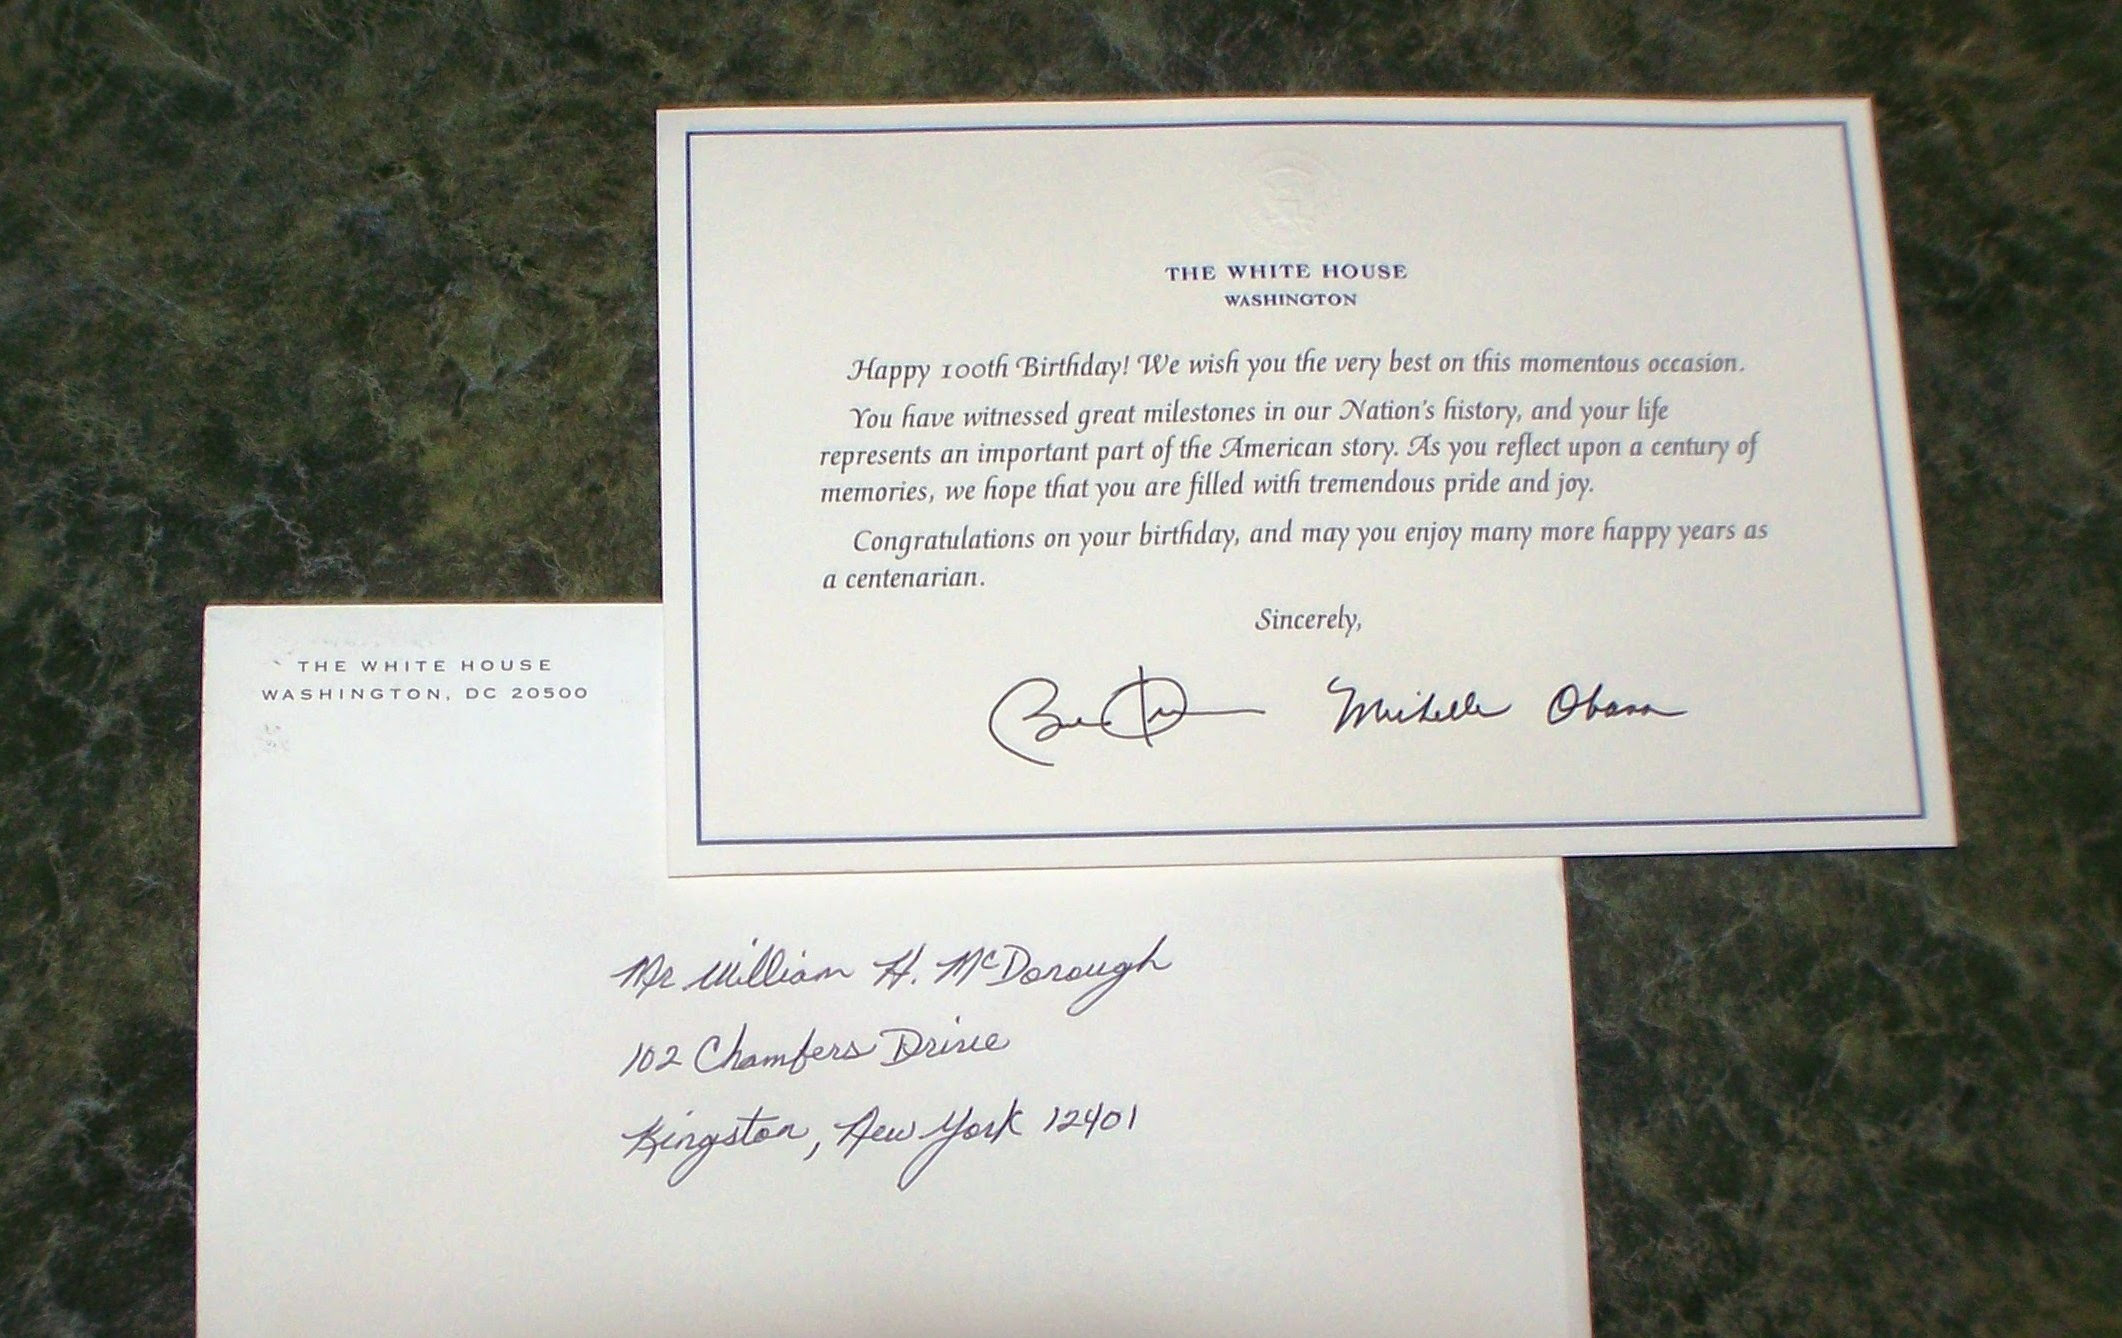 THE WHITE HOUSE
WASHINGTON
Happy 100th Birthday! We wish you the very best on this momentous occasion.
You have witnessed great milestones in our Nation's history, and your life
represents an important part of the American story. As you reflect upon a century of
memories, we hope that you are filled with tremendous pride and joy.
Congratulations on your birthday, and may you enjoy many more happy years as
a centenarian.
Sincerely,
Michelle Obama
THE WHITE HOUSE
WASHINGTON, DC 20500
Mr William H. McDorough
102 Chambers Drive
Kingston, New York 12401